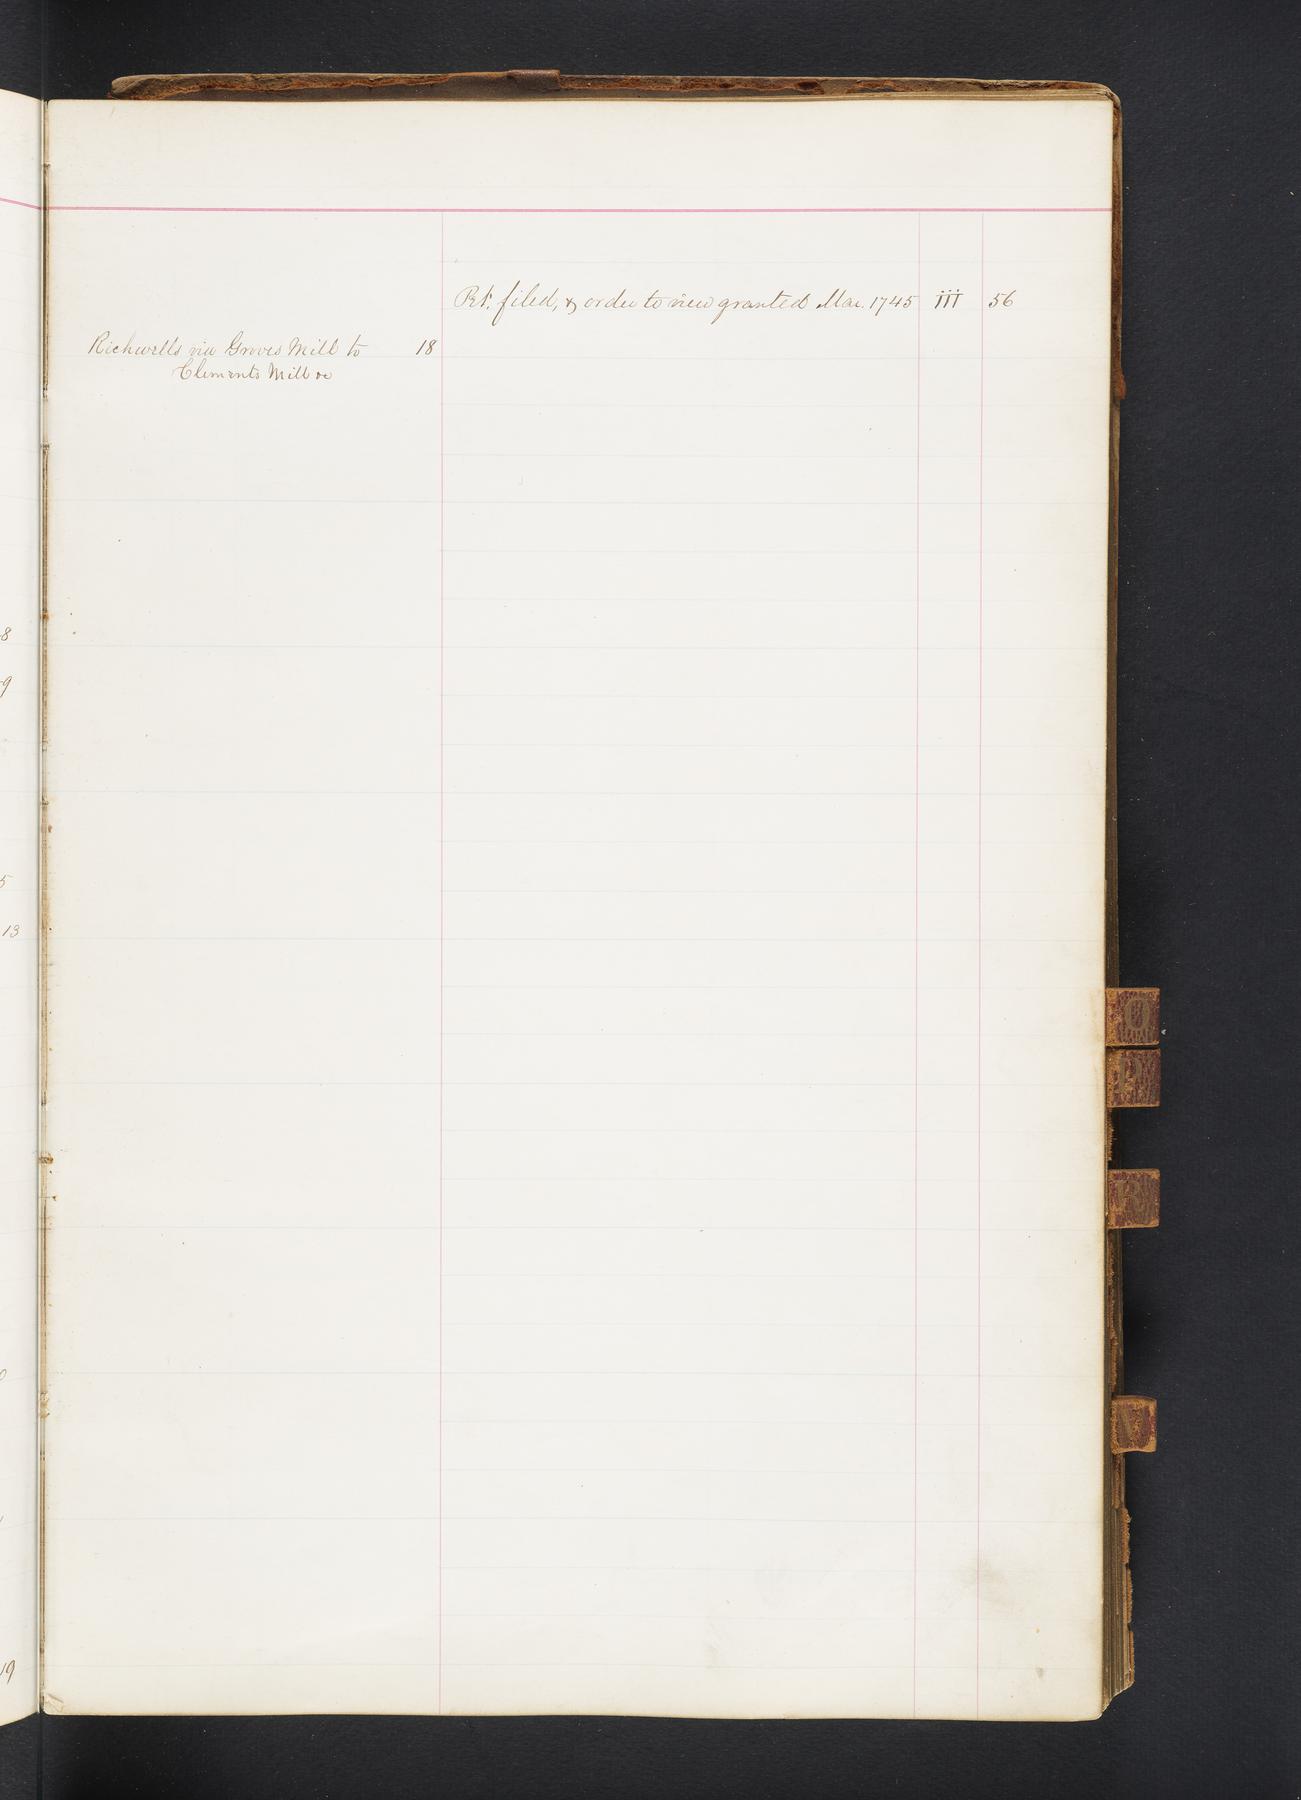 Pet. filed, & order to view granted Mar. 1745 iii 56
Richwells via Groves Mill to 18
Clements Mill &c
8
9
5
13
19
O
P
R
V